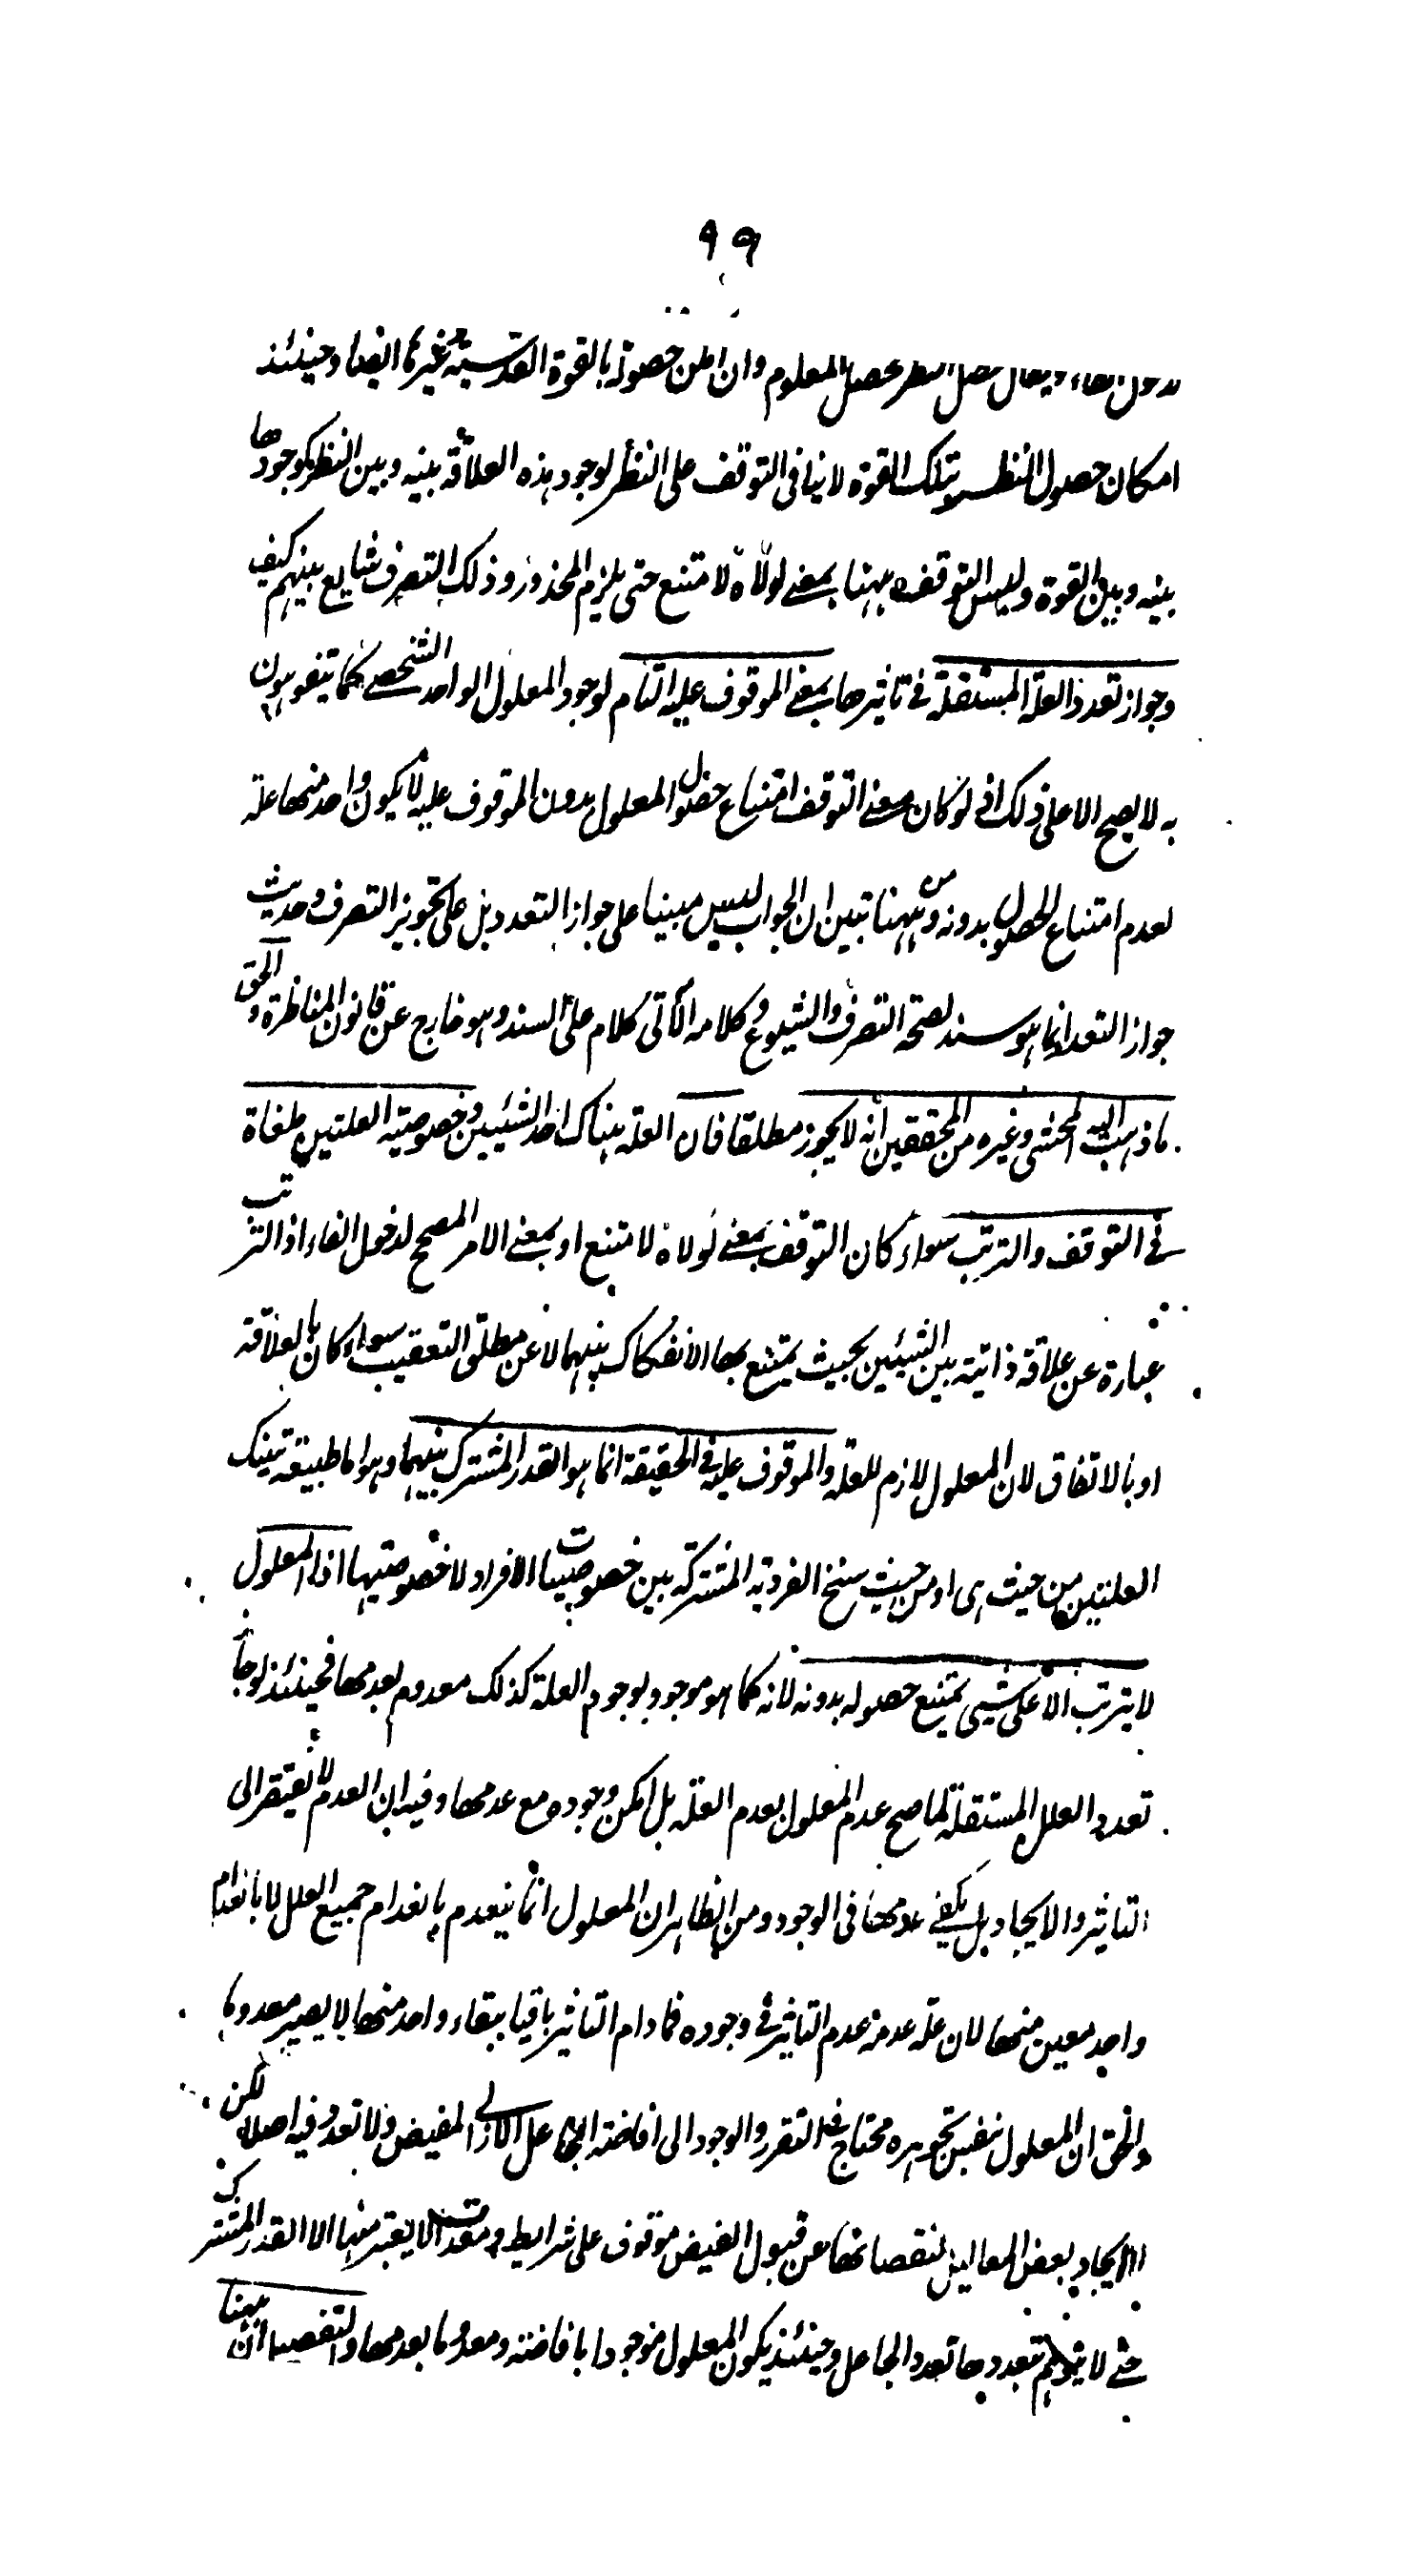 ٩٩
فيقال حصل النظر فحصل المعلوم وان امكن حصوله بالقوة القدسية وغيرها ايضا وحينئذ
امكان حصول النظر بتلك القوة لا ينافى التوقف على النظر لوجود هذه العلاقة بينه وبين النظر كوجودها
بينه وبين القوة وليس التوقف ههنا بمعنى لولاه لامتنع حتى يلزم المحذور وذلك التصرف شايع بينهم كيف
وجواز تعدد العلة المستقلة فى تاثيرها بمعنى الموقوف عليه التام لوجود المعلول الواحد الشخصى كما يتفوهون
به لا يصح الا على ذلك اذ لو كان معنى التوقف امتناع حصول المعلول بدون الموقوف عليه لا يكون واحد منهما علة
لعدم امتناع الحصول بدونه ومن ههنا تبين ان الجواب ليس مبنيا على جواز التعدد بل على تجويز التصرف وحديث
جواز التعدد انما هو سند لصحة التصرف والشيوع وكلامه الآتى كلام على السند وهو خارج عن قانون المناظرة والحق
ما ذهب اليه المحشى وغيره من المحققين انه لا يجوز مطلقا فان العلة هناك احد الشيئين وخصوصية العلتين ملغاة
فى التوقف والترتب سواء كان التوقف بمعنى لولاه لامتنع او بمعنى الامر المصحح لدخول الفاء اذ الترتب
عبارة عن علاقة ذاتية بين الشيئين بحيث يمتنع بها الانفكاك بينهما لا عن مطلق التعقيب سواء كان بالعلاقة
او بالاتفاق لان المعلول لازم للعلة والموقوف عليه فى الحقيقة انما هو القدر المشترك بينهما وهو اما طبيعة تينك
العلتين من حيث هى او من حيث سنخ الفردية المشتركة بين خصوصيات الافراد لا خصوصيتهما اذ المعلول
لا يترتب الا على شيى يمتنع حصوله بدونه لانه كما هو موجود بوجود العلة كذلك معدوم بعدمها فحينئذ لو جاز
تعدد العلل المستقلة لما صح عدم المعلول بعدم العلة بل امكن وجوده مع عدمها وفيه ان العدم لا يفتقر الى
التاثير والايجاد بل يكفى عدمها فى الوجود ومن الظاهر ان المعلول انما ينعدم بانعدام جميع العلل لا بانعدام
واحد معين منها لان علة عدمه عدم التاثير فى وجوده فما دام التاثير باقيا ببقاء واحد منها لا يصير معدوما
والحق ان المعلول بنفس تجوهره محتاج فى التقرر والوجود الى افاضة الجاعل الازلى المفيض ولا تعدد فيه اصلا لكن
الايجاد بعض المعاليل لنقصانها عن قبول الفيض موقوف على شرايط ومعدات لا يعتبر منها الا القدر المشترك
حتى لا يتوهم بتعددها تعدد الجاعل وحينئذ يكون المعلول موجودا بافاضته ومعدوما بعدمها والتفصيل ان ههنا